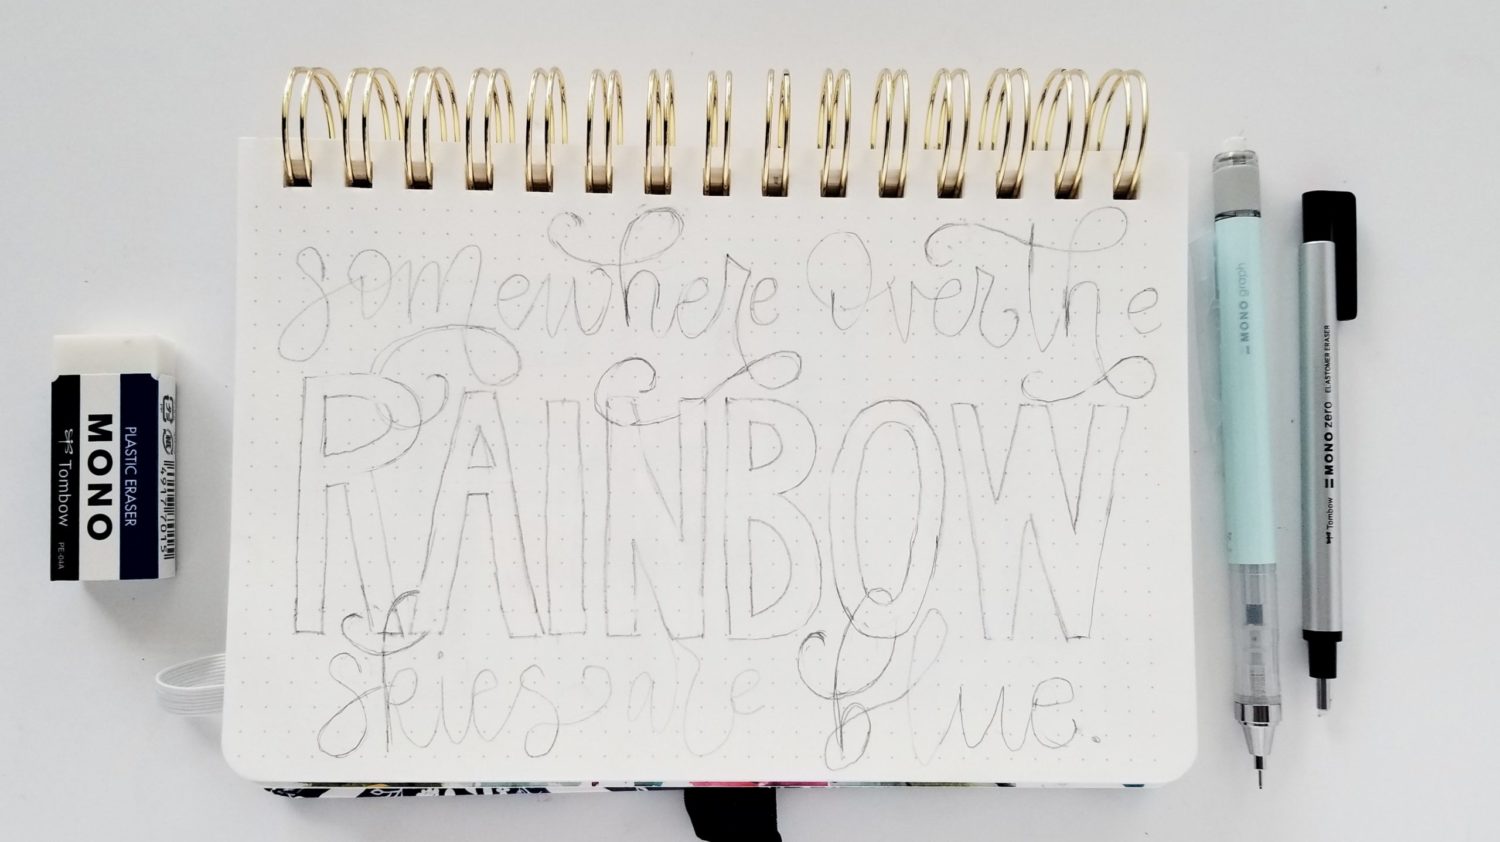 somewhere over the
RAINBOW
skies are blue.
PLASTIC ERASER
MONO
Tombow PE-04A
4 9 1 7 7 0 1 5
MONO graph
Tombow MONO zero ELASTOMER ERASER